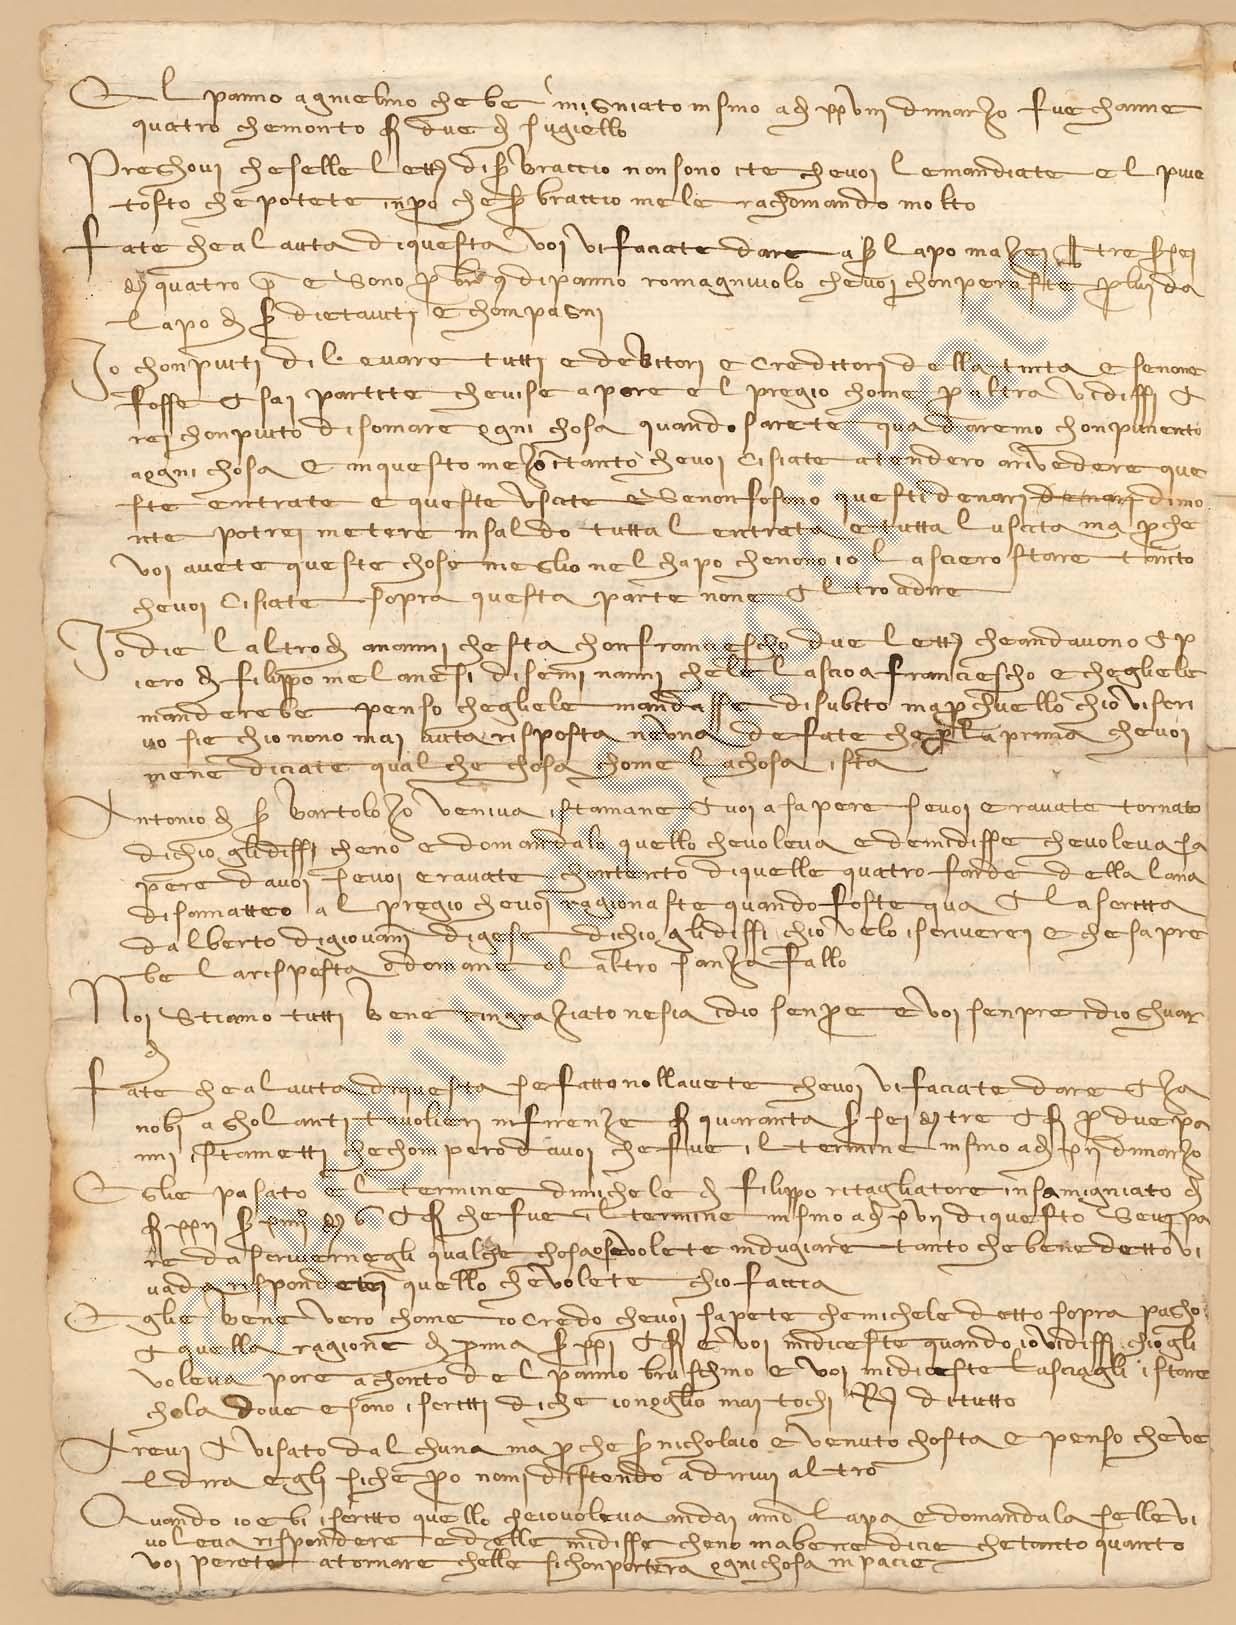 El panno agniellino che be misniato insino a dì xxviii di marzo fue channe
quatro che monto f. due d sugiello
Preghovi che se lle lett di s braccio non sono ite che voi le mandiate el piue
tosto che potete inpero che s braccio me le rachomando molto
Fate che alauta di questa voi vi faciate dare a s lapo mazei tre s sei
d quatro p e sono p br q di panno romagniuolo che voi chonperaste p lui da
lapo d s dietaiuti e chompagni
Io chonpiutti di levare tutti e debitori e creditori della tinta e se none
fosse asai partite che vi se a pore el pregio chome p altra vi dissi a
rei chonpiuto di somare ogni chosa quando sarete qua daremo chonpimento
a ogni chosa e in questo mezo intanto che voi ci siate atendero a rivedere que
ste entrate e queste uscite e se non fosono questi denari denari di mo
nte potrei metere in saldo tutta l entrata e tutta l uscita ma p che
voi avete queste chose meglio nel chapo che nono io lasciero stare tanto
che voi ci siate sopra questa parte none altro a dire
Io die l altro dì a nanni che sta chon franciescho due lett che andavono a p
iero d filippo melanesi di semi nanni che le lascio a franciescho e che gliele
manderebe penso che gliele mandasse di subito ma p chuello chio vi scri
vo sie chio nono mai auta risposta neuna de fate che p la prima che voi
mene diciate qualche chosa chome la chosa ista
Antonio d s bartolozo veniva istamane a voi a sapere se voi eravate tornato
di chio gli dissi che no e domandalo quello che voleva ed e mi disse che voleva sa
pere da voi se voi eravate chontento di quelle quatro farde della lana
di samatteo al pregio che voi ragionaste quando foste qua a la scritta
d alberto di giovani di gese di chio gli dissi chio velo iscriverei e che sapre
be la risposta o domane o l altro sanza fallo
Noi stiamo tutti bene ringraziato ne sia idio senpre e voi senpre idio ghuar
di
Fate che alauta di questa se fatto nollavete che voi vi faciate dare a za
nobi a ghollanti tavolieri in firenze f quaranta s sei d tre a f p due pa
nni istametti che chonpero da voi che fue il termine insino a dì xii di marzo
Eglie pasato el termine di michele d filippo ritagliatore in samigniato d
f xxii s xiiii d 6 a f che fue il termine insino a dì xvii di questo sevi pa
re da scrivernegli qualche chosa o se volete indugiare tanto che benedetto vi
vada rispondetei quello che volete chio faccia
Eglie bene vero chome io credo che voi sapete che michele detto sopra pagho
a quella ragione d prima s xxi a f e voi mi diceste quando io vi dissi chio gli
voleva pore a chonto del panno bruschino e voi mi diceste lasciagli istare
chola dove e sono iscritti di che io noglio mai tochi di tutto
Arevi avisato d alchuna ma p che s nicholaio e venuto chosta e penso che ve
l dira egli siche p o nomi distendo a dirvi altro
Quando io ebi iscritto quello che io voleva andai a mo lapa e domandala se lle vi
voleva rispondere ed elle mi disse che no ma bene dicie che tanto quanto
voi perete a tornare chelle si chonportera ogni chosa in pacie